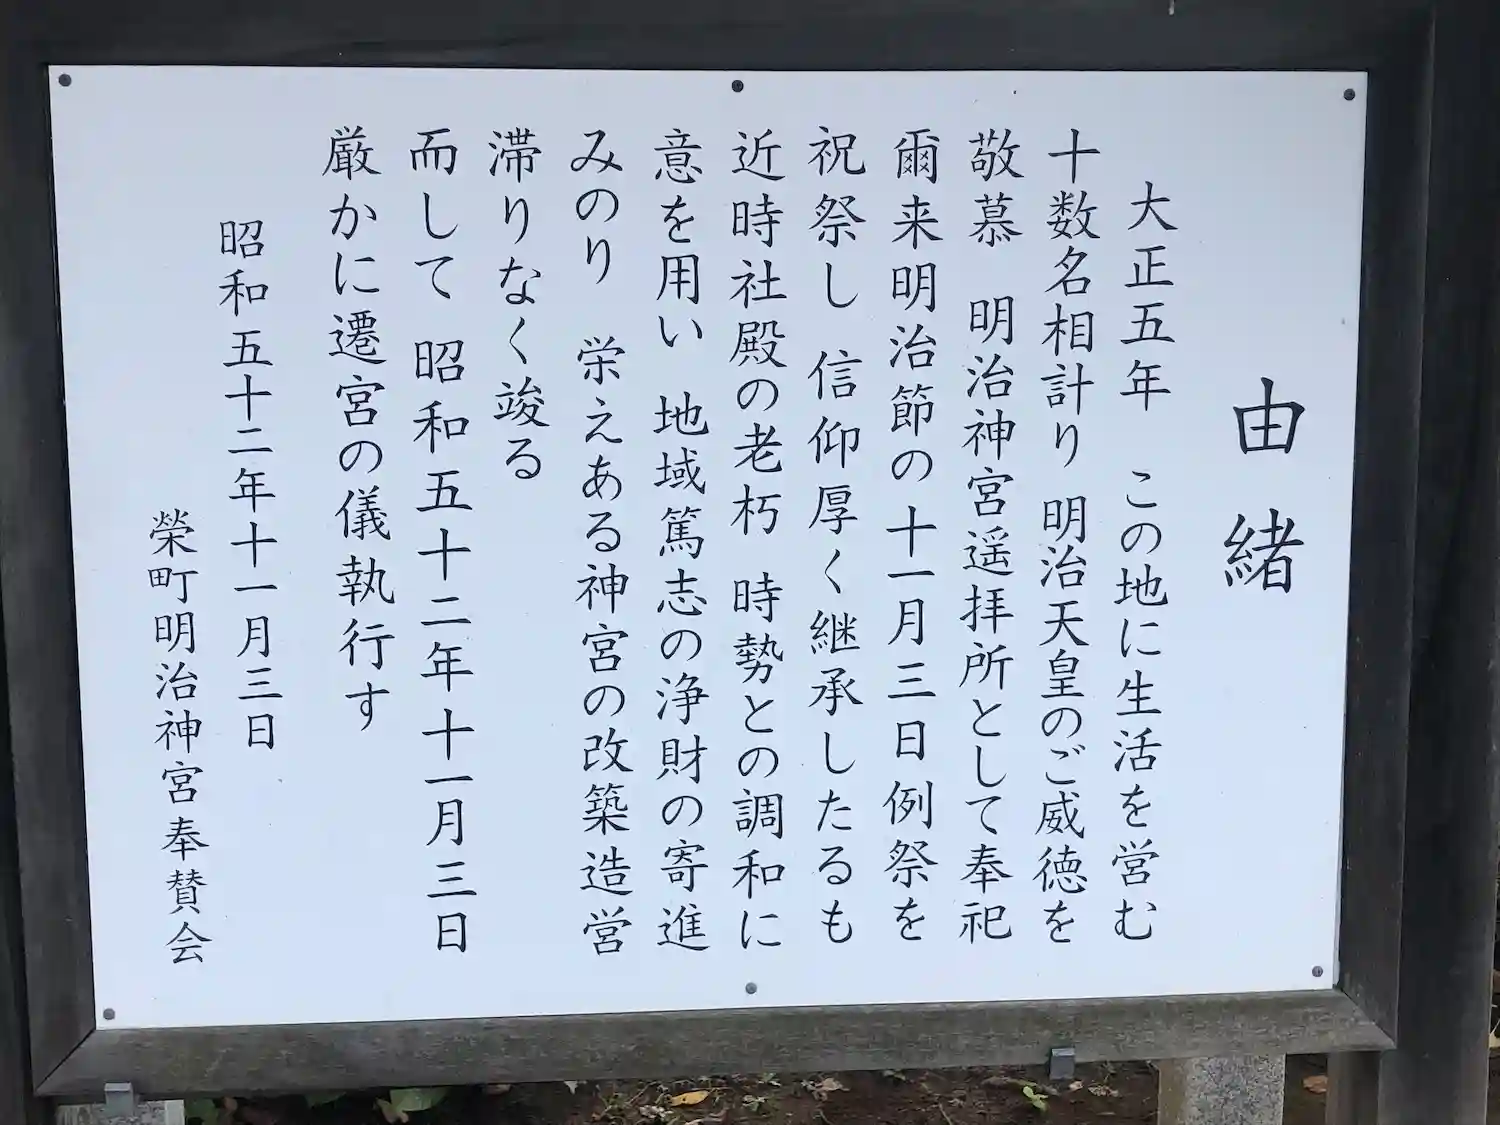 由緒
大正五年　この地に生活を営む
十数名相計り 明治天皇のご威徳を
敬慕　明治神宮遥拝所として奉祀
爾来明治節の十一月三日例祭を
祝祭し 信仰厚く継承したるも
近時社殿の老朽 時勢との調和に
意を用い 地域篤志の浄財の寄進
みのり　栄えある神宮の改築造営
滞りなく竣る
而して 昭和五十二年十一月三日
厳かに遷宮の儀執行す
昭和五十二年十一月三日
榮町明治神宮奉賛会